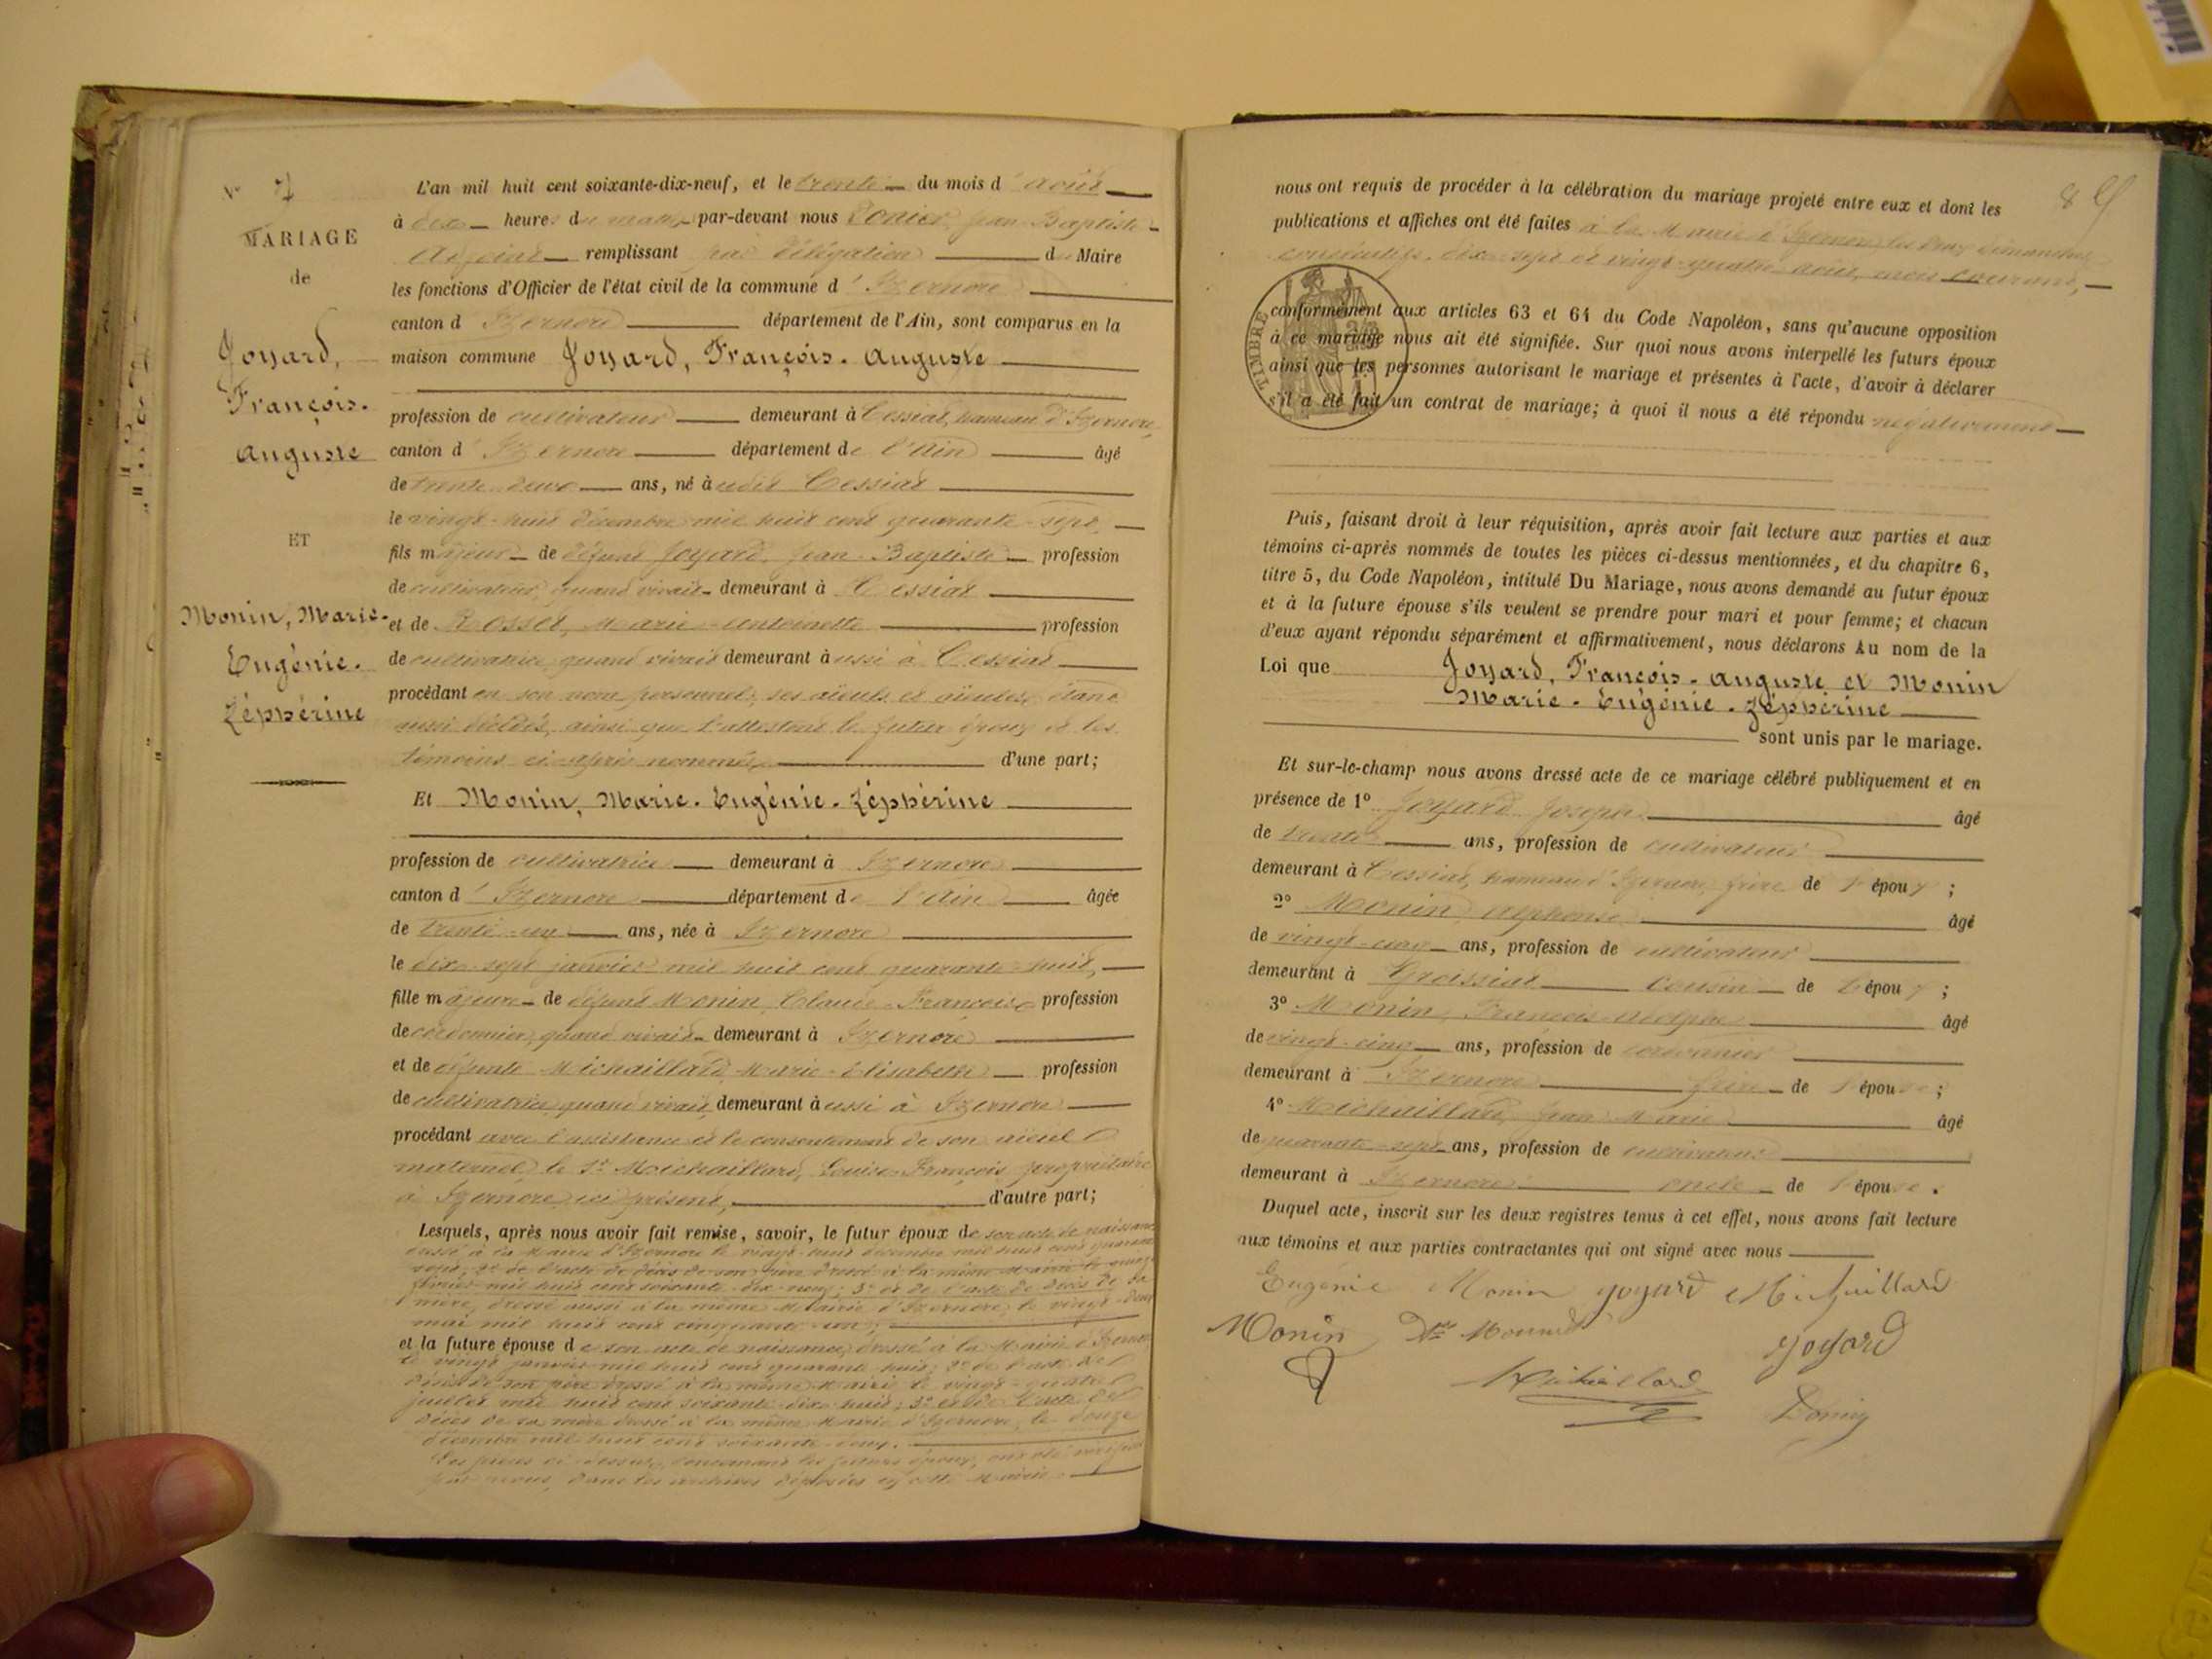 N° 7
MARIAGE
de
Joyard,
François-
Auguste
ET
Monin, Marie-
Eugénie-
Zéphérine
L'an mil huit cent soixante-dix-neuf, et le trente du mois d'août
à dix heures du matin, par-devant nous Jean-Baptiste
Adjoint remplissant par délégation du Maire
les fonctions d'Officier de l'état civil de la commune d'Izernore
canton d'Izernore département de l'Ain, sont comparus en la
maison commune Joyard, François-Auguste
profession de cultivateur demeurant à Cessiat, hameau d'Izernore,
canton d'Izernore département de l'Ain âgé
de trente-deux ans, né à udit Cessiat
le vingt-huit décembre mil huit cent quarante-sept,
fils majeur de défunt Joyard, Jean-Baptiste profession
de cultivateur, quand vivait demeurant à Cessiat
et de Rosset, Marie-Antoinette profession
de cultivatrice, quand vivait demeurant à ussi à Cessiat
procédant en son nom personnel; ses aïeuls et aïeules étant
aussi décédés, ainsi que l'attestent le futur époux et les
témoins ci-après nommés, d'une part;
Et Monin, Marie-Eugénie-Zéphérine
profession de cultivatrice demeurant à Izernore
canton d'Izernore département de l'Ain âgée
de trente-un ans, née à Izernore
le dix-sept janvier mil huit cent quarante-huit,
fille majeure de défunt Monin, Claude-François profession
de cordonnier, quand vivait demeurant à Izernore
et de défunte Michaillard, Marie-Elisabeth profession
de cultivatrice quand vivait, demeurant à ussi à Izernore
procédant avec l'assistance et le consentement de son aïeul
maternel, le Sr Michaillard, Louis-François propriétaire
à Izernore, ici présent, d'autre part;
Lesquels, après nous avoir fait remise, savoir, le futur époux de son acte de naissance
dressé à la Mairie d'Izernore le vingt-huit décembre mil huit cent quarante
sept; 2° de l'acte de décès de son père dressé à la même Mairie le
février mil huit cent soixante-dix-neuf; 3° et de l'acte de décès de sa
mère, dressé aussi à la même Mairie d'Izernore, le vingt-deux
mai mil huit cent cinquante-un;
et la future épouse de son acte de naissance, dressé à la Mairie d'Izernore
le vingt janvier mil huit cent quarante-huit; 2° de l'acte de
décès de son père dressé à la même Mairie le vingt-quatre
juillet mil huit cent soixante-dix-huit; 3° et de l'acte de
décès de sa mère dressé à la même Mairie d'Izernore, le douze
décembre mil huit cent soixante-deux.
Les pièces ci-dessus, concernant les futurs époux, ont été vérifiées
par nous, dans les archives déposées en cette Mairie.
nous ont requis de procéder à la célébration du mariage projeté entre eux et dont les
publications et affiches ont été faites à la Mairie d'Izernore les deux dimanches
consécutifs, dix-sept et vingt-quatre août, mois courant,
TIMBRE
conformément aux articles 63 et 64 du Code Napoléon, sans qu'aucune opposition
à ce mariage nous ait été signifiée. Sur quoi nous avons interpellé les futurs époux
ainsi que les personnes autorisant le mariage et présentes à l'acte, d'avoir à déclarer
s'il a été fait un contrat de mariage; à quoi il nous a été répondu négativement
Puis, faisant droit à leur réquisition, après avoir fait lecture aux parties et aux
témoins ci-après nommés de toutes les pièces ci-dessus mentionnées, et du chapitre 6,
titre 5, du Code Napoléon, intitulé Du Mariage, nous avons demandé au futur époux
et à la future épouse s'ils veulent se prendre pour mari et pour femme; et chacun
d'eux ayant répondu séparément et affirmativement, nous déclarons Au nom de la
Loi que Joyard, François-Auguste et Monin
Marie-Eugénie-Zéphérine
sont unis par le mariage.
Et sur-le-champ nous avons dressé acte de ce mariage célébré publiquement et en
présence de 1° Joyard Joseph âgé
de trente ans, profession de cultivateur
demeurant à Cessiat, hameau d'Izernore, frère de l'époux;
2° Monin, Alphonse âgé
de vingt-cinq ans, profession de cultivateur
demeurant à Groissiat cousin de l'époux;
3° Monin, François-Adolphe âgé
de vingt-cinq ans, profession de cordonnier
demeurant à Izernore frère de l'épouse;
4° Michaillard, Jean-Marie âgé
de quarante-sept ans, profession de cultivateur
demeurant à Izernore oncle de l'épouse.
Duquel acte, inscrit sur les deux registres tenus à cet effet, nous avons fait lecture
aux témoins et aux parties contractantes qui ont signé avec nous
Eugénie Monin Joyard Michaillard
Monin Joyard
Michaillard